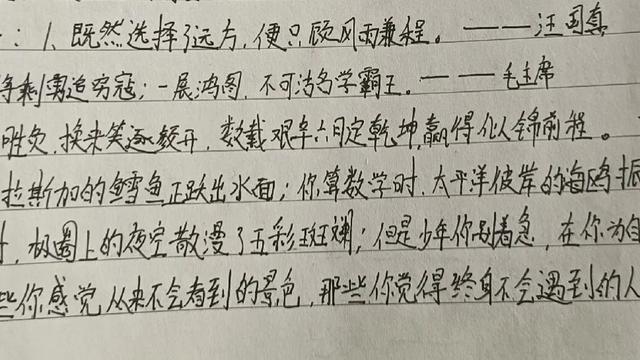 ：1、既然选择了远方，便只顾风雨兼程。——汪国真
将剩勇追穷寇；一展鸿图，不可沽名学霸王。——毛主席
胜负，换来笑逐颜开，数载艰辛六月定乾坤，赢得似锦前程。
拉斯加的鳕鱼正跃出水面；你算数学时，太平洋彼岸的海鸥振
时，极圈上的夜空散漫了五彩斑斓；但是少年你别着急，在你为自
些你感觉从来不会看到的景色，那些你觉得终身不会遇到的人